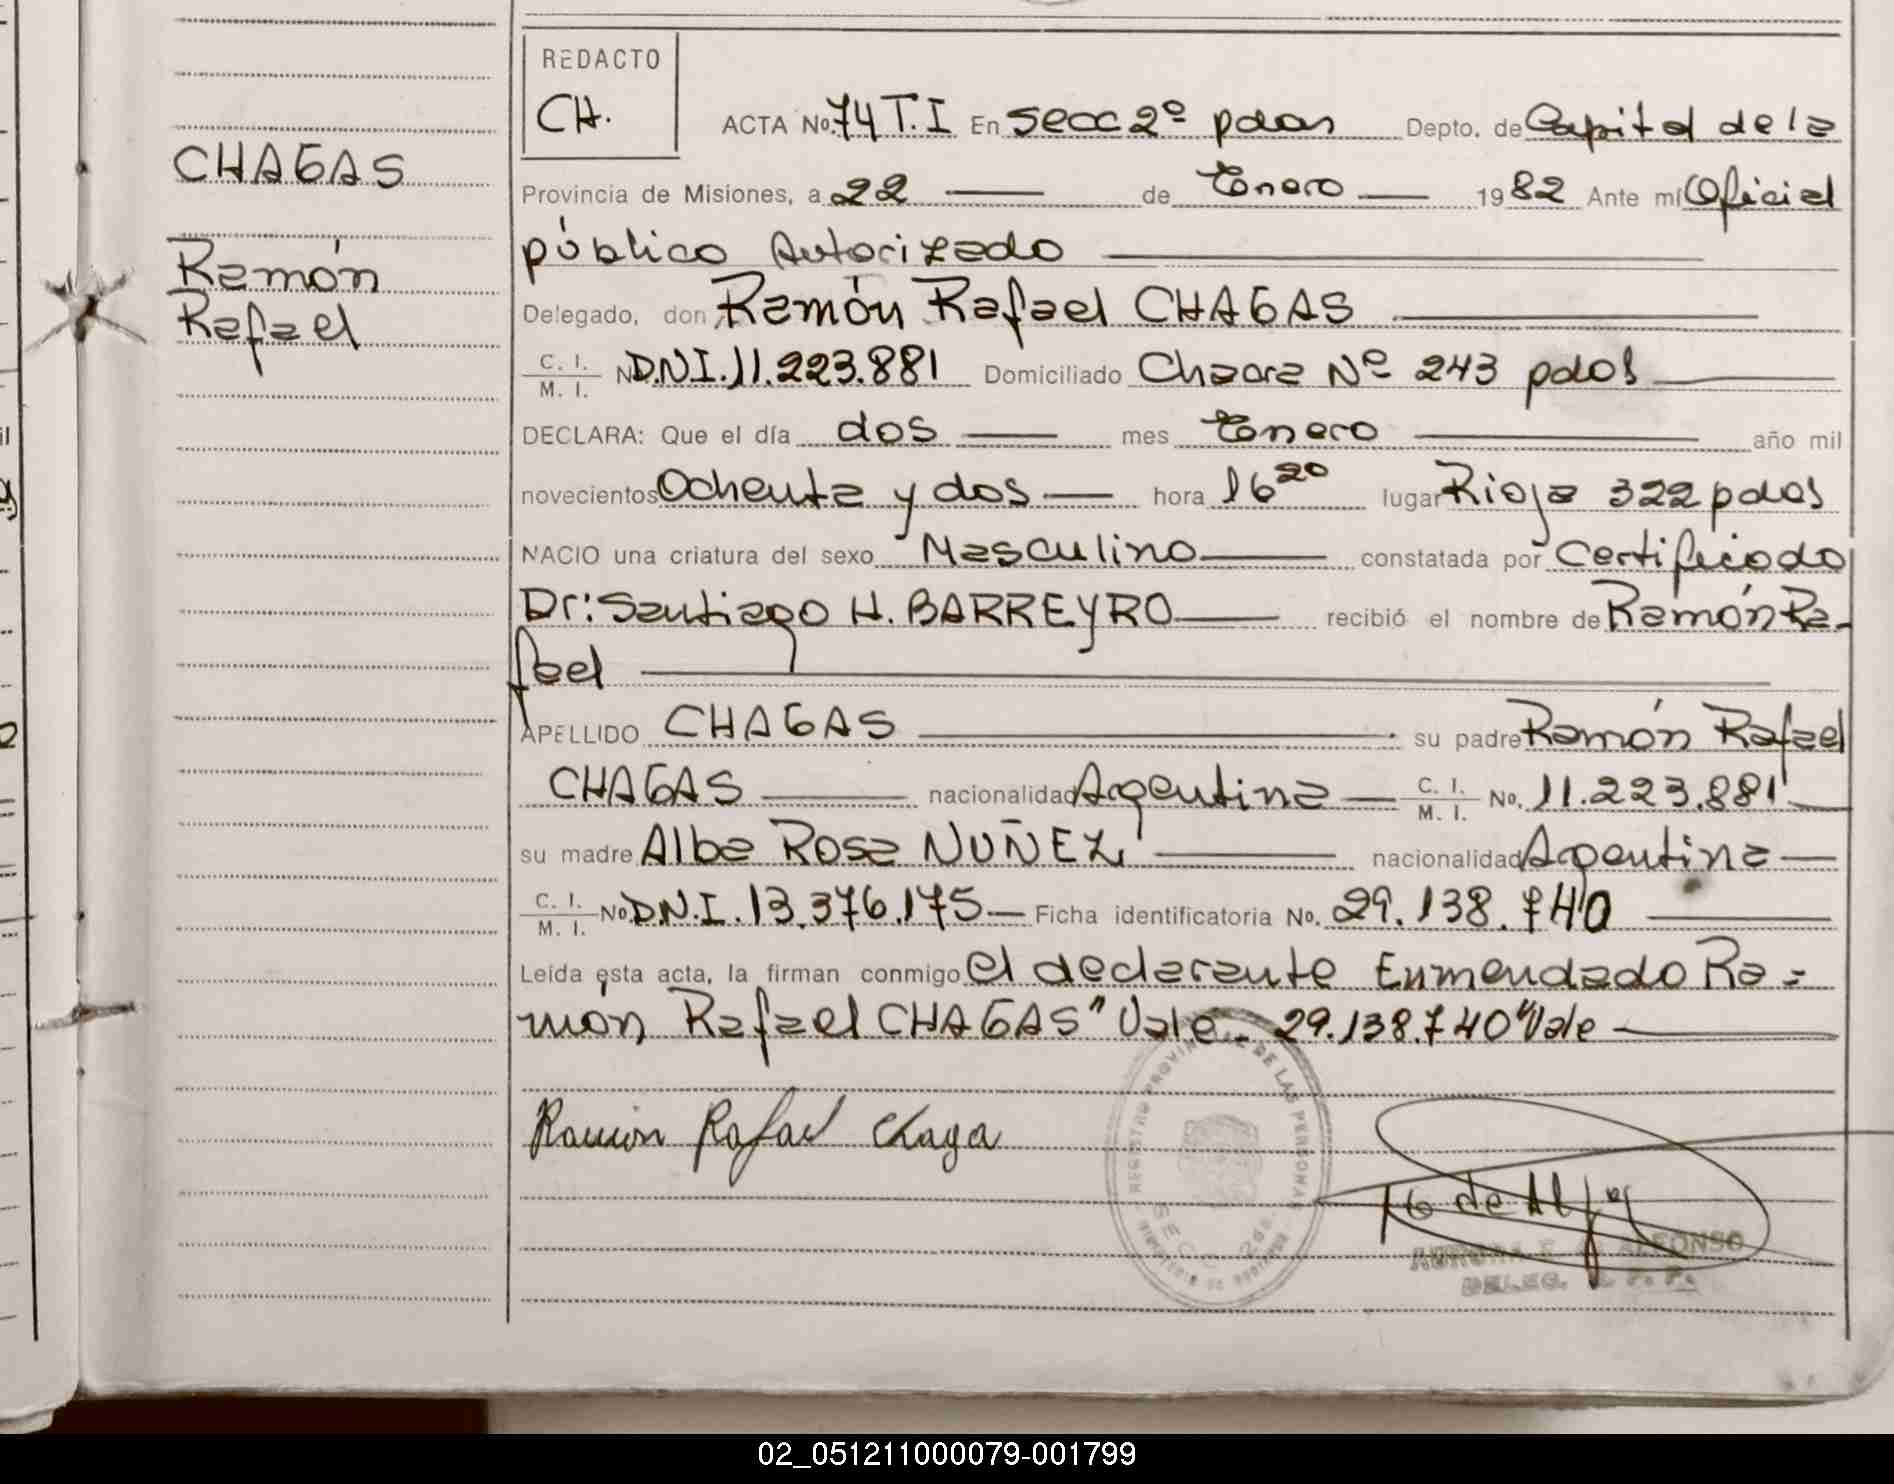 CHAGAS
Ramón
Rafael
REDACTO
CH.
ACTA No. 74 T.I En secc 2º pdas Depto. de Capital de la
Provincia de Misiones, a 22 de Enero 1982 Ante mí Oficial
público Autorizado
Delegado, don Ramón Rafael CHAGAS
C. I.
M. I. No D.N.I. 11.223.881 Domiciliado Chacra Nº 243 pdas
DECLARA: Que el día dos mes Enero año mil
novecientos Ochenta y dos hora 16 20 lugar Rioja 322 pdas
NACIO una criatura del sexo Masculino constatada por Certificado
Dr: Santiago H. BARREYRO recibió el nombre de Ramón Ra-
fael
APELLIDO CHAGAS su padre Ramón Rafael
CHAGAS nacionalidad Argentina C. I. M. I. No. 11.223.881
su madre Alba Rosa NUÑEZ nacionalidad Argentina
C. I.
M. I. No D.N.I. 13.376.175 Ficha identificatoria No. 29.138.740
Leída esta acta, la firman conmigo el declarante Enmendado Ra=
món Rafael CHAGAS" Vale 29.138.740" Vale
Ramon Rafael Chaga
REGISTRO PROVINCIAL DE LAS PERSONAS
SECC. 2da.
ALFONSO
DELEG.
02_051211000079-001799